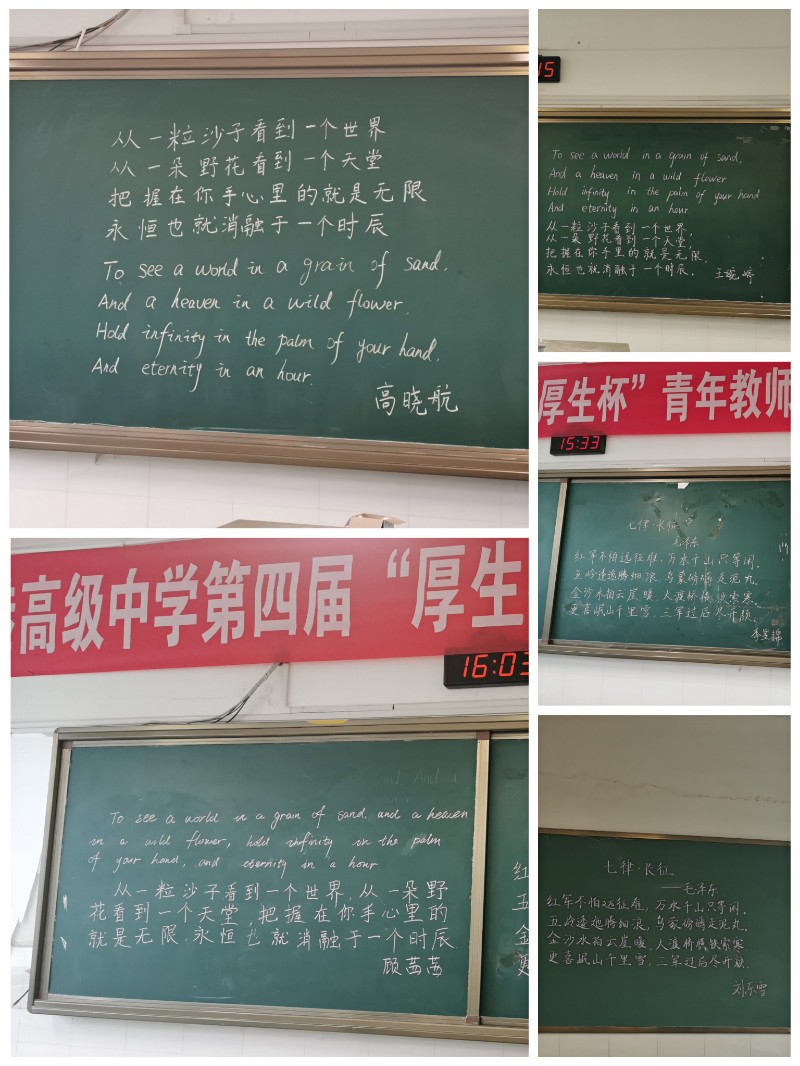 从一粒沙子看到一个世界
从一朵野花看到一个天堂
把握在你手心里的就是无限
永恒也就消融于一个时辰
To see a world in a grain of sand.
And a heaven in a wild flower.
Hold infinity in the palm of your hand.
And eternity in an hour.
高晓航
15
To see a world in a grain of sand,
And a heaven in a wild flower
Hold infinity in the palm of your hand
And eternity in an hour
从一粒沙子看到一个世界,
从一朵野花看到一个天堂,
把握在你手里的就是无限,
永恒也就消融于一个时辰.
王婷
厚生杯”青年教师
15:33
七律·长征
毛泽东
红军不怕远征难,万水千山只等闲.
五岭逶迤腾细浪,乌蒙磅礴走泥丸.
金沙水拍云崖暖,大渡桥横铁索寒.
更喜岷山千里雪,三军过后尽开颜.
李
高级中学第四届“厚生
16:03
To see a world in a grain of sand, and a heaven
in a wild flower, hold infinity in the palm
of your hand, and eternity in a hour
从一粒沙子看到一个世界,从一朵野
花看到一个天堂,把握在你手心里的
就是无限,永恒也就消融于一个时辰
顾茜茜
红
五
金
更
七律·长征
——毛泽东
红军不怕远征难,万水千山只等闲.
五岭逶迤腾细浪,乌蒙磅礴走泥丸.
金沙水拍云崖暖,大渡桥横铁索寒
更喜岷山千里雪,三军过后尽开颜.
刘东雪